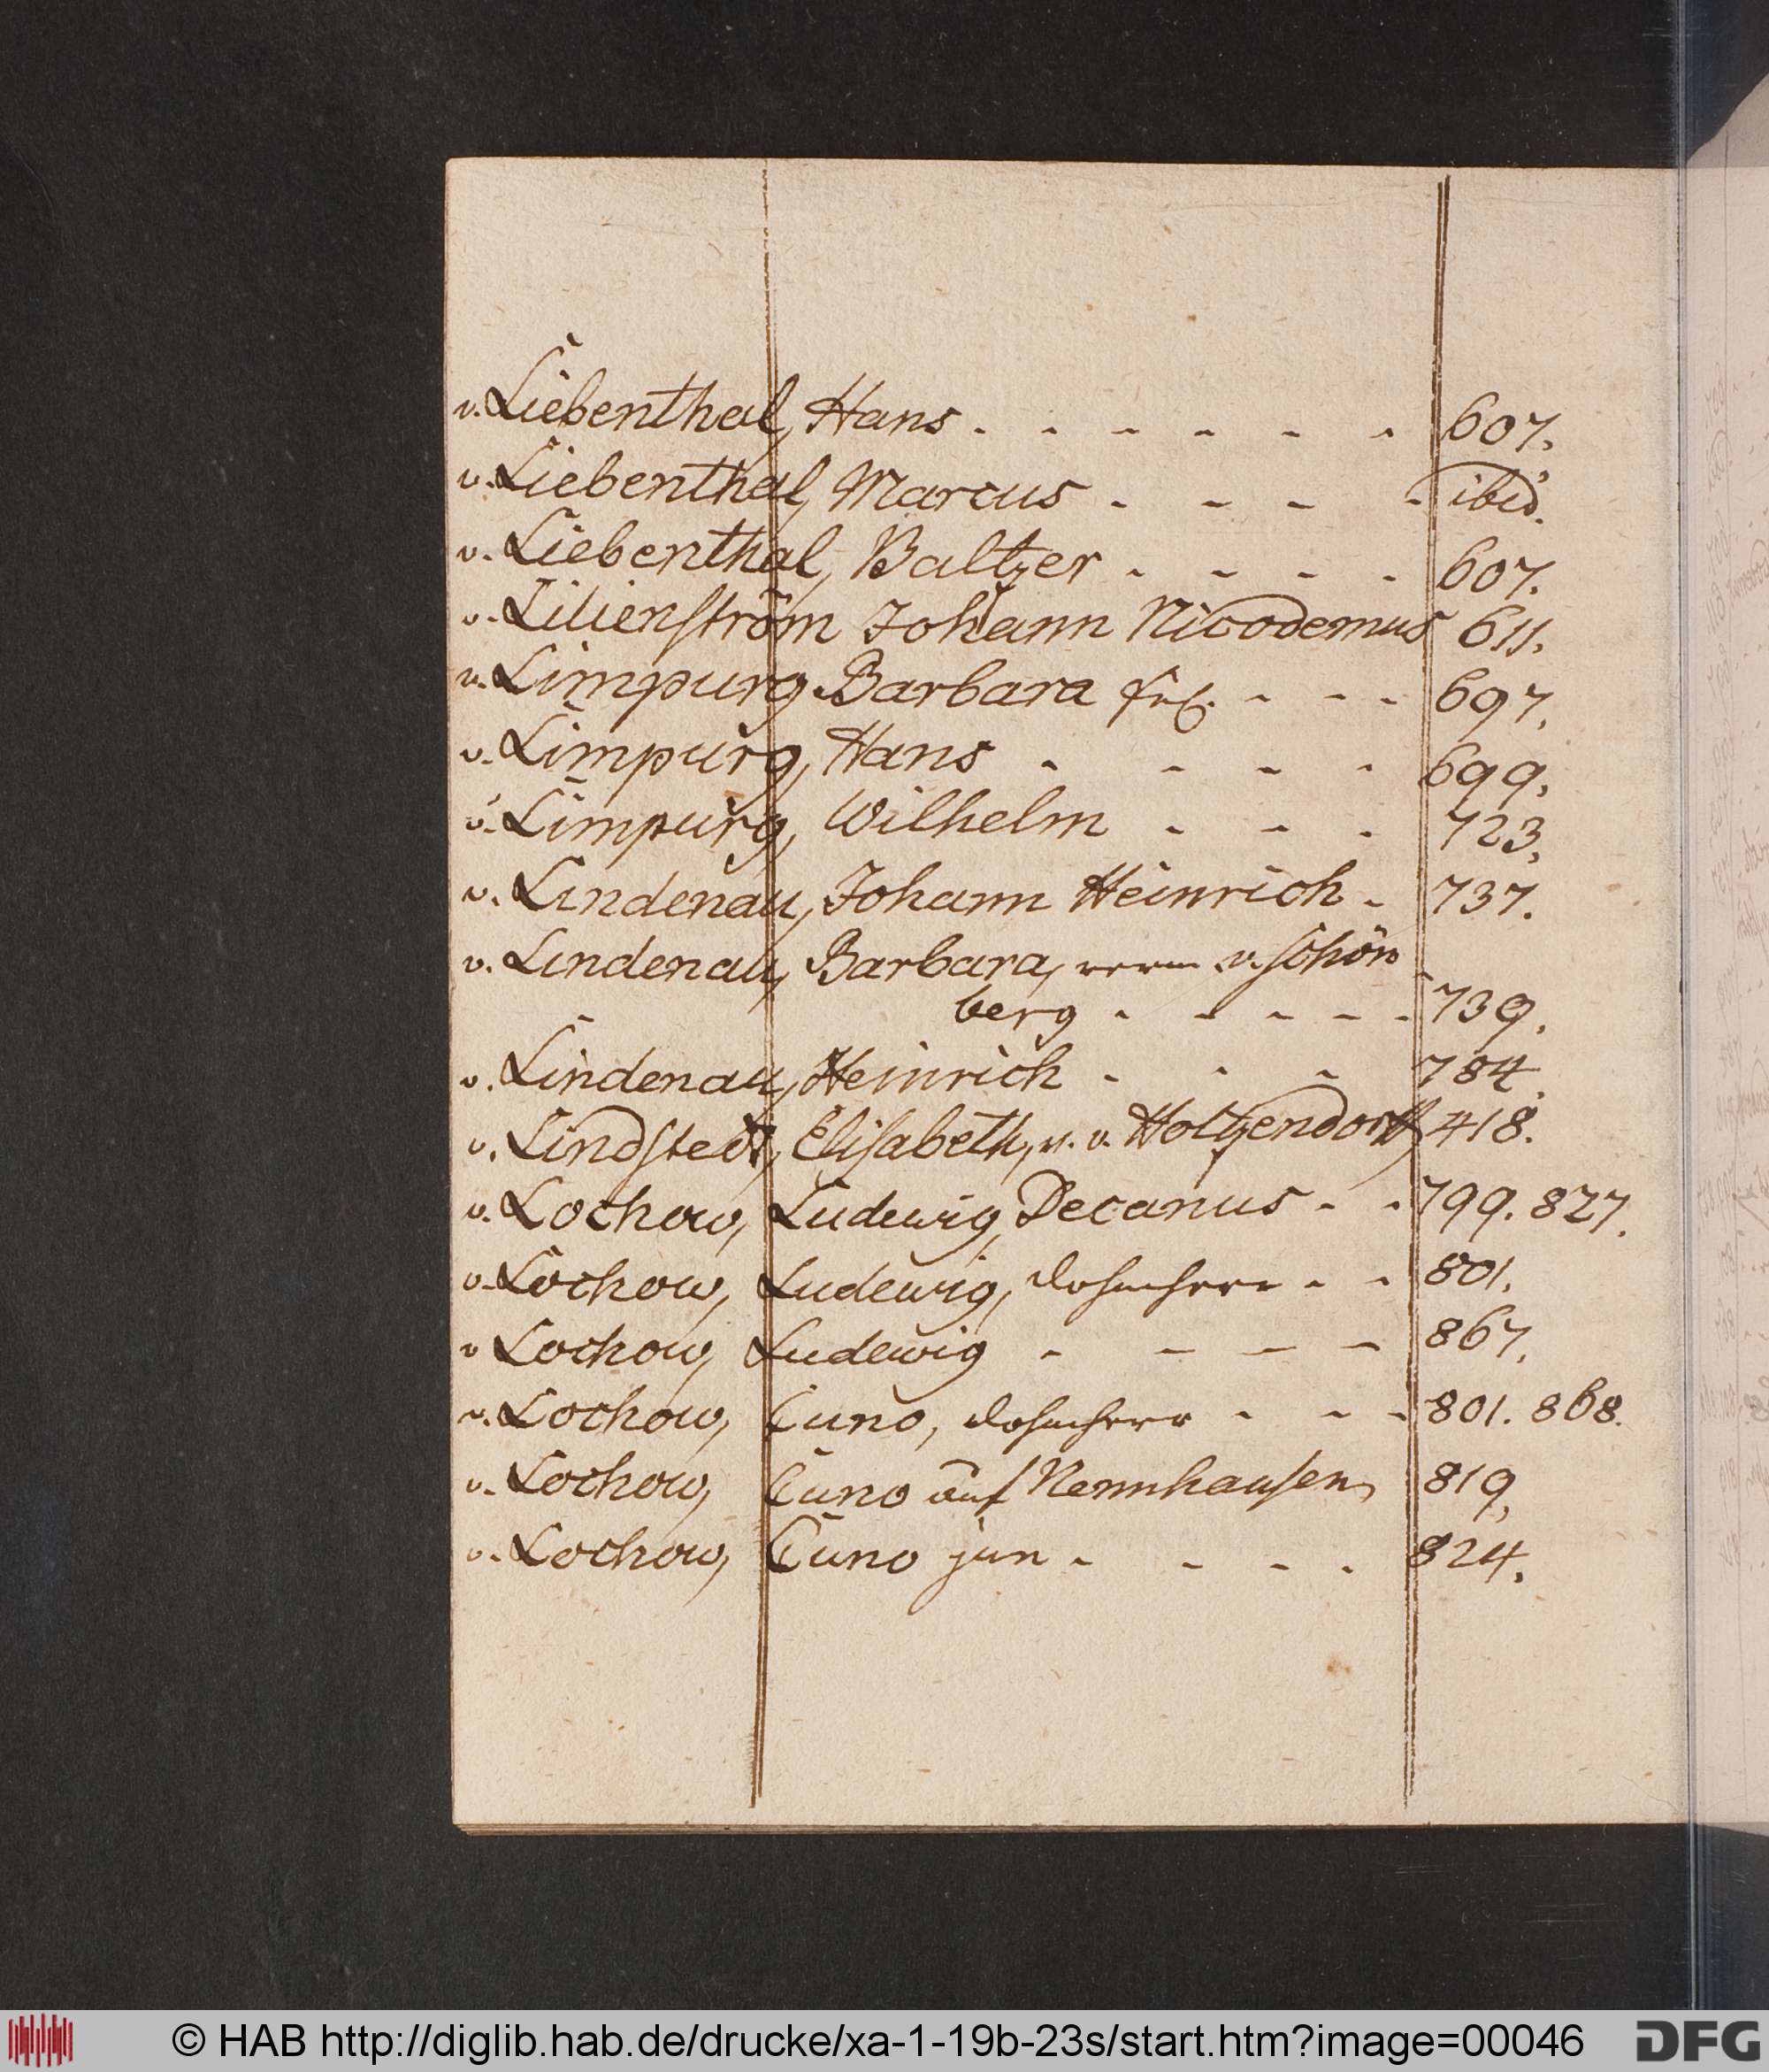 v. Liebenthal, Hans - - - - - - 607.
v. Liebenthal, Marcus - - - - ibid.
v. Liebenthal, Baltzer - - - - 607.
v. Lilienström Johann Nicodemus 611.
v. Limpurg Barbara frl. - - - 697.
v. Limpurg, Hans - - - - 699.
v. Limpurg, Wilhelm - - - 723.
v. Lindenau, Johann Heinrich - 737.
v. Lindenau, Barbara, verm v. Schön
berg - - - - - 739.
v. Lindenau, Heinrich - - - 784.
v. Lindstedt, Elisabeth, v. v. Holtzendorff 418.
v. Lochow, Ludewig, Decanus - - 799. 827.
v. Lochow, Ludewig, Dohmherr - - 801.
v Lochow, Ludewig - - - - 867.
v. Lochow, Cuno, Dohmherr - - - 801. 868.
v. Lochow, Cuno auf Nennhausen, 819.
v. Lochow, Cuno jun - - - - 824.
© HAB http://diglib.hab.de/drucke/xa-1-19b-23s/start.htm?image=00046
DFG